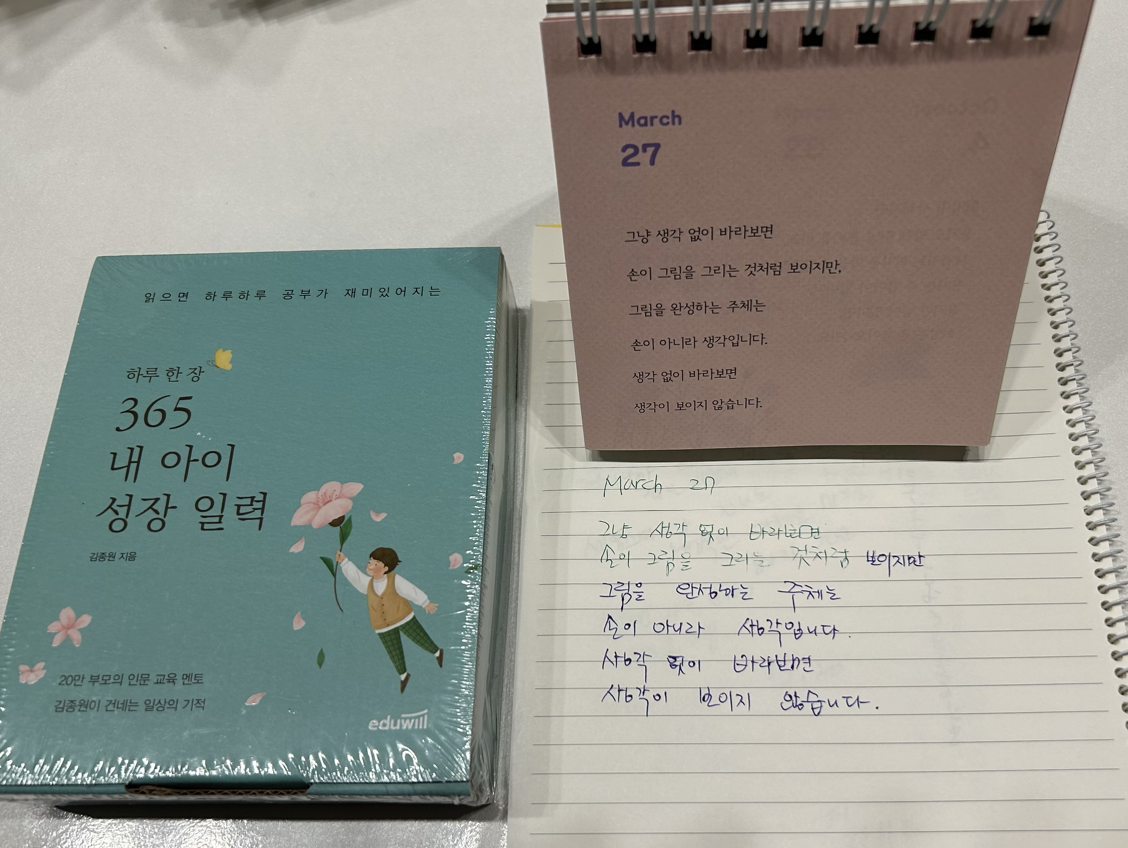 읽으면 하루하루 공부가 재미있어지는
하루 한 장
365
내 아이
성장 일력
김종원 지음
20만 부모의 인문 교육 멘토
김종원이 건네는 일상의 기적
eduwill
March
27
그냥 생각 없이 바라보면
손이 그림을 그리는 것처럼 보이지만,
그림을 완성하는 주체는
손이 아니라 생각입니다.
생각 없이 바라보면
생각이 보이지 않습니다.
March 27
그냥 생각 없이 바라보면
손이 그림을 그리는 것처럼 보이지만
그림을 완성하는 주체는
손이 아니라 생각입니다.
생각 없이 바라보면
생각이 보이지 않습니다.